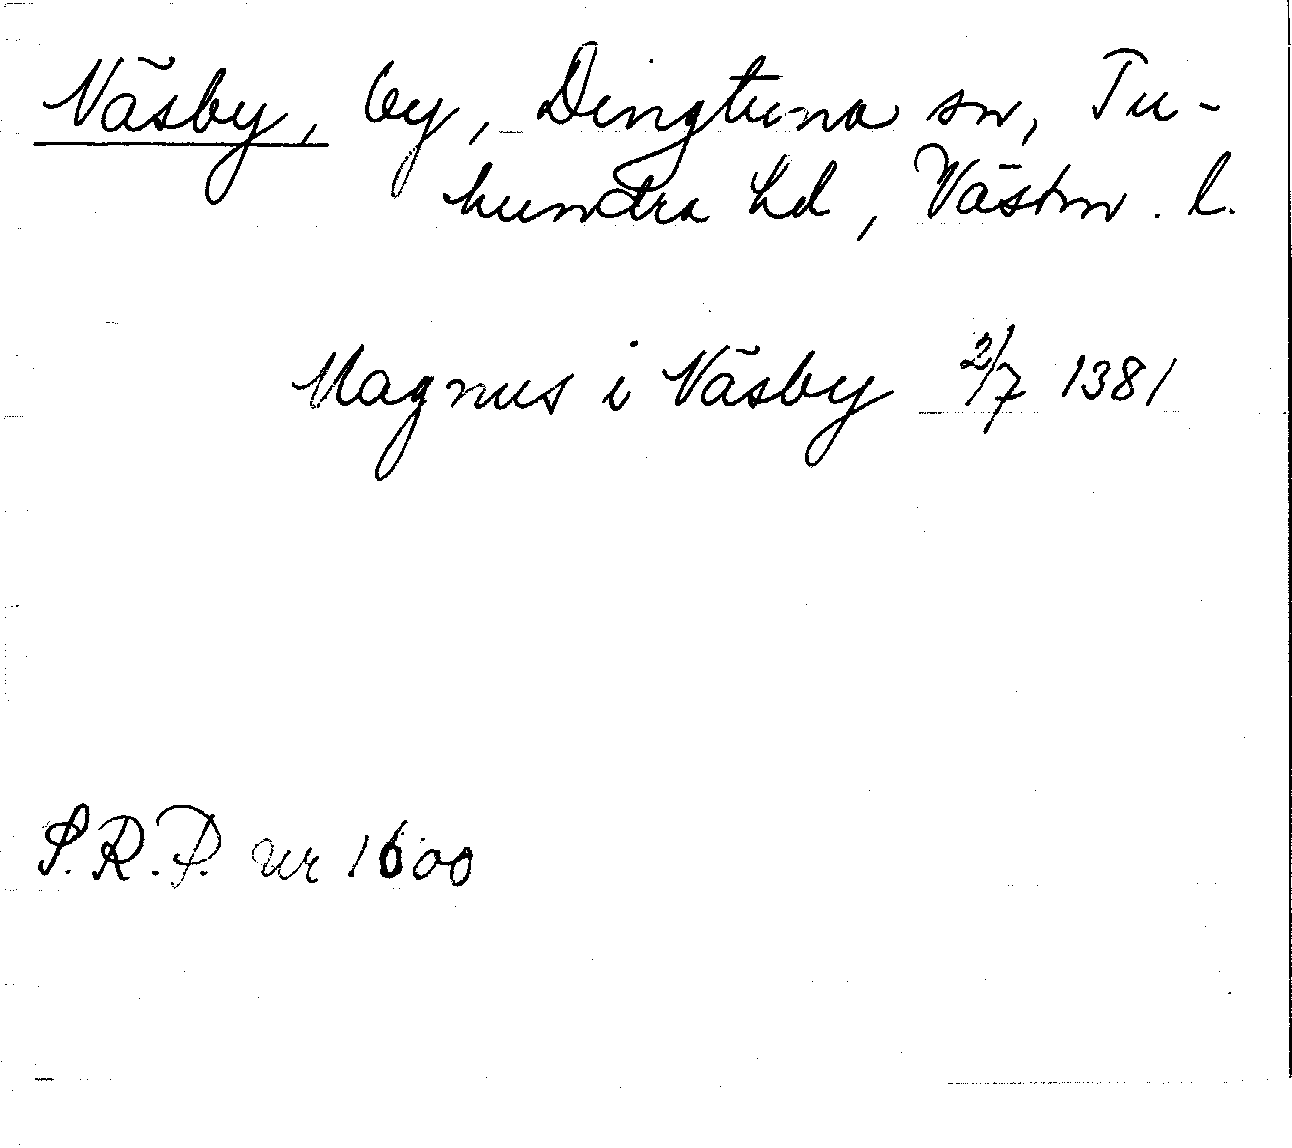 Näsby, by, Dingtuna sn, Tu-
hundra hd, Västm. l.
Magnus i Näsby 2/7 1381
S.R.P. nr 1600